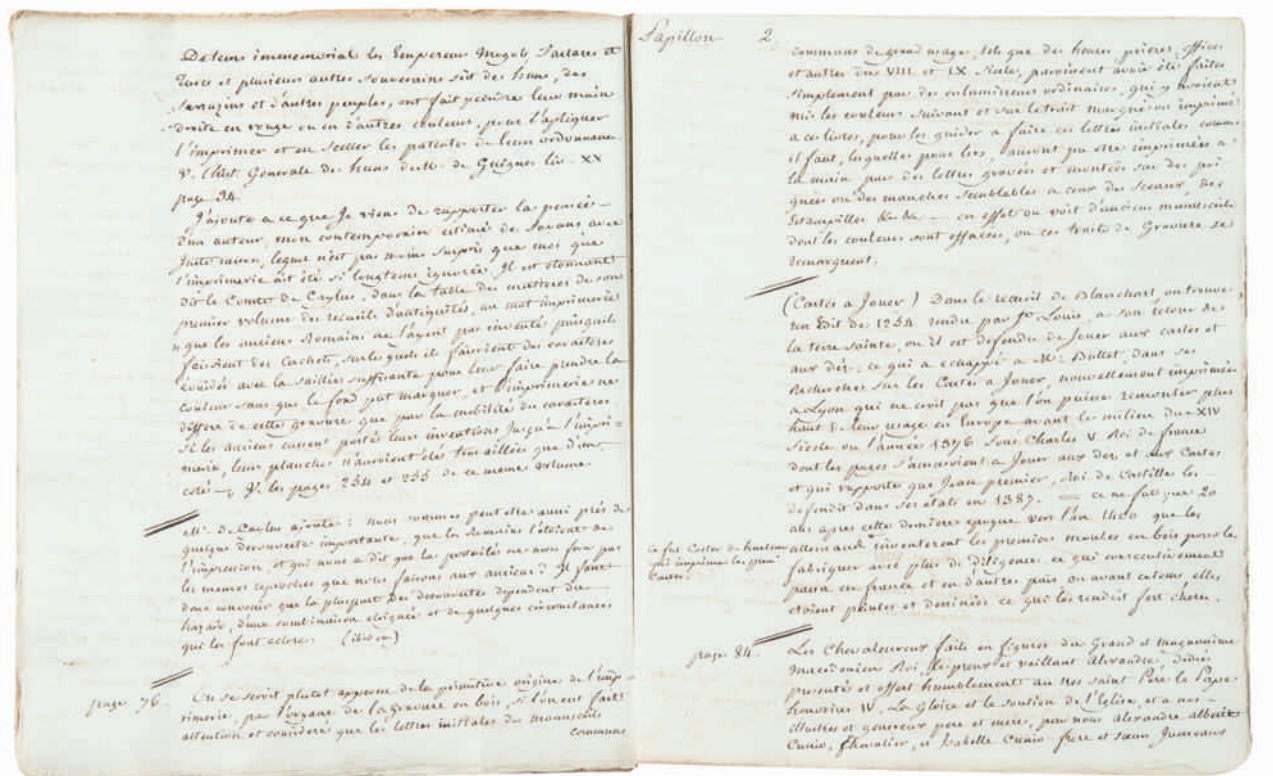 De tems immemorial les Empereurs Mogols, Tartares et
Turcs et plusieurs autres Souverains soit des huns, des
Sarrazins et d'autres peuples, ont fait peindre leur main
droite en rouge ou en d'autres couleurs, pour l'apliquer
l'imprimer et en Sceller les patentes de leurs ordonnances
V. l'hist. Generale des huns de Mr. de Guignes liv. XX
page 34
J'ajoute a ce que Je viens de rapporter la pensée
d'un auteur, mon contemporain estimé des Savans avec
Juste raison, lequel n'est pas moins surpris que moi que
l'imprimerie ait été si longtems ignorée. Il est etonnant
dit le Comte de Caylus, dans la table des matteres de son
premier volume des recueils d'antiquités, au mot imprimerie
" que les anciens Romains ne l'ayent pas inventé puisquils
faisoient des Cachets, sur lesquels ils faisoient des caracteres
evuidés avec la saillie suffisante pour leur faire prendre la
couleur sans que le fond put marquer, et l'imprimerie ne
differe de cette gravure que par la mobilité des caracteres.
Si les anciens eussent portés leurs inventions Jusqu'a l'impri-
merie, leurs planches n'auroient été travaillées que d'un
coté — V. les pages 254 et 255 de ce meme volume.
Mr. de Caylus ajoute : nous sommes peut etre aussi près de
quelque decouverte importante, que les Romains l'étoient de
l'impression, et qui nous a dit que la posterité ne nous fera pas
les memes reproches que nous faisons aux anciens ? Il faut
donc convenir que la pluspart des decouvertes dependent du
hazard, d'une combinaison eloignée et de quelques circonstances
qui les font eclore. (ibidem)
page 76. On se seroit plutot apperceu de la primitive origine de l'imp-
rimerie, par l'organe de la gravure en bois, si l'on eut fait
attention et consideré que les lettres initiales des manuscrits
communs
Papillon 2
communs de grand usage, tels que des heures prieres, offices
et autres des VIII et IX Siecle, paroissent avoir été faites
simplement par des enlumineurs ordinaires, qui y avoient
mis les couleurs suivant et sur le trait marqué ou imprimé
a ces livres, pour les guider a faire ces lettres initiales comme
il faut, lesquelles pour lors, auront pu etre imprimées a
la main par des lettres gravées et montées sur des poi
gnées ou des manches semblables a ceux des Sceaux, des
Estampilles &a &a — en effet on voit d'anciens manuscrits
dont les couleurs sont effacées, ou ces traits de Gravure se
remarquent.
(Cartes a Jouer) Dans le recueil de Blanchart, on trouve
un Edit de 1254 rendu par St. Louis, a son retour de
la terre sainte, ou il est defendu de Jouer aux cartes et
aux dés, ce qui a echappé a Mr. Bullet dans ses
Recherches sur les Cartes a Jouer, nouvellement imprimées
a Lyon qui ne croit pas que l'on puisse remonter plus
haut de leur usage en Europe avant le milieu du XIV
Siecle ou l'année 1376 sous Charles V Roi de france
dont les pages s'amusoient a Jouer aux dés et aux Cartes
et qui rapporte que Jean premier, Roi de Castille les
defendit dans ses etats en 1387. — ce ne fut que 20
ans apres cette derniere epoque vers l'an 1400 que les
allemands inventerent les premiers moules en bois pour les
fabriquer avec plus de diligence ce qui consecutivement
passa en france et en d'autres païs, ou avant ce tems, elles
etoient peintes et dessinées ce qui les rendoit fort cheres.
ce fut Coster de haerlem
qui imprima les prem
Cartes.
page 84. Les Chevaleureux faits en figures du Grand et magnanime
Macedonien Roi, le preux et vaillant Alexandre, dediés
presentés et offert humblement au tres saint Pere le Pape
honorius IV. La Gloire et le soutien de l'Eglise, et a nos
illustres et genereux pere et mere, par nous Alexandre alberic
Cunio, Chevalier, et Isabelle Cunio, frere et soeur Jumeaux